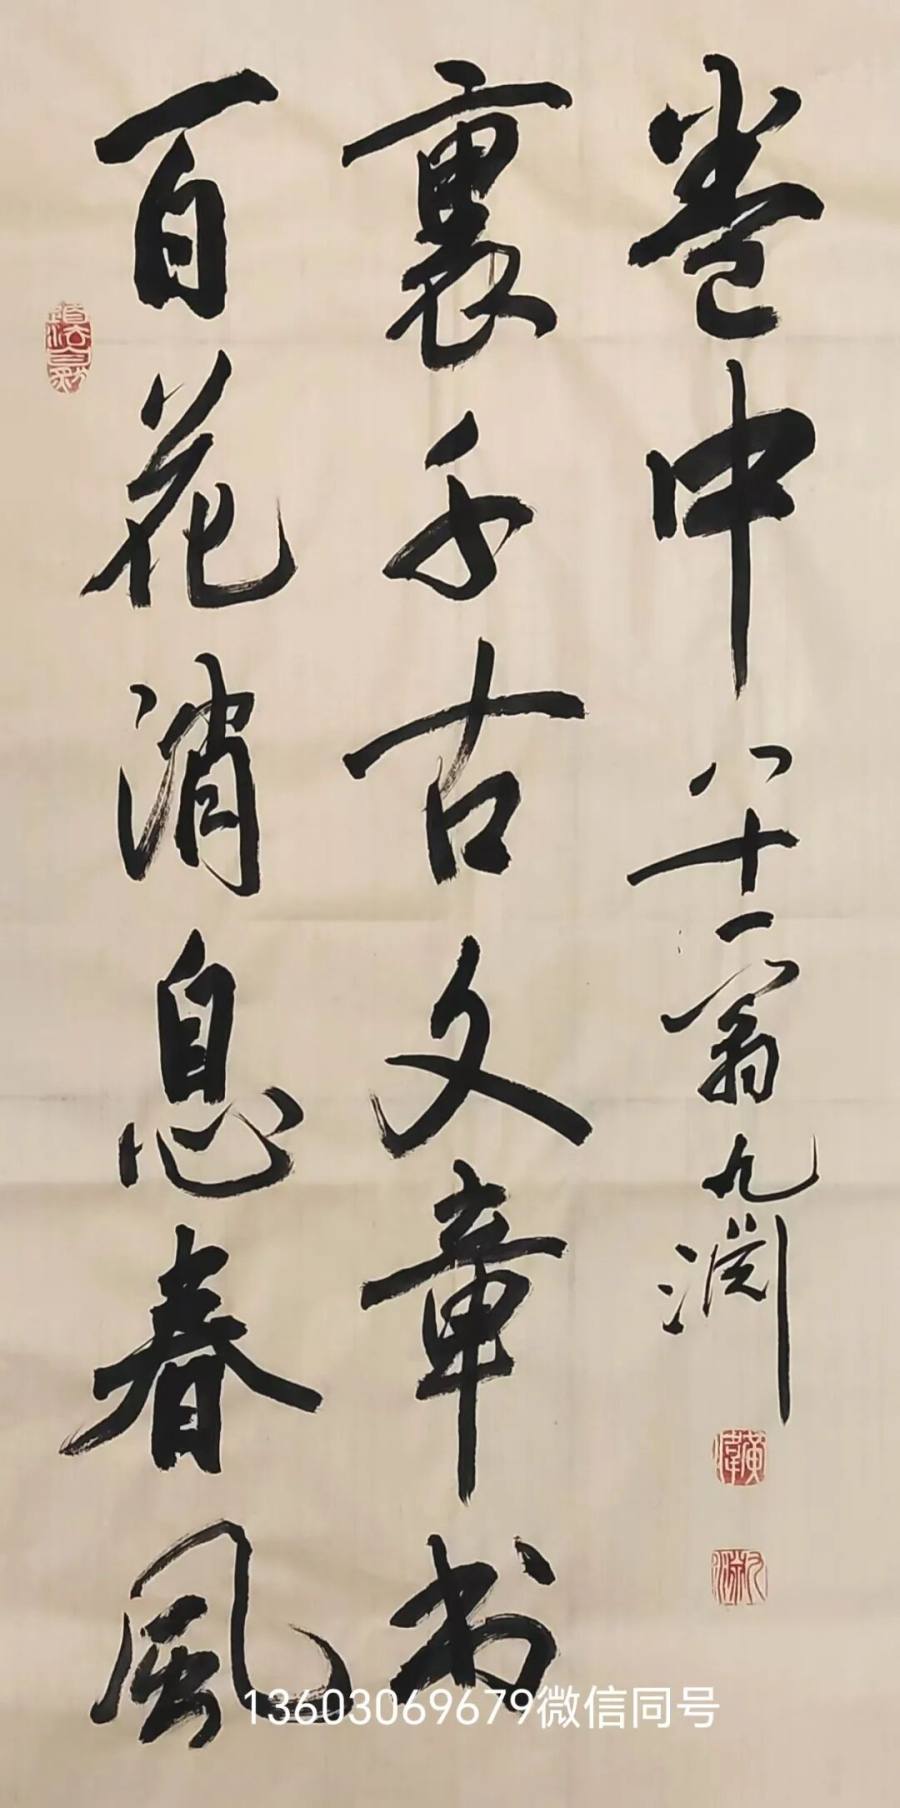 道法自然
百花消息春風
裏千古文章书
卷中 八十一翁九渊
13603069679微信同号